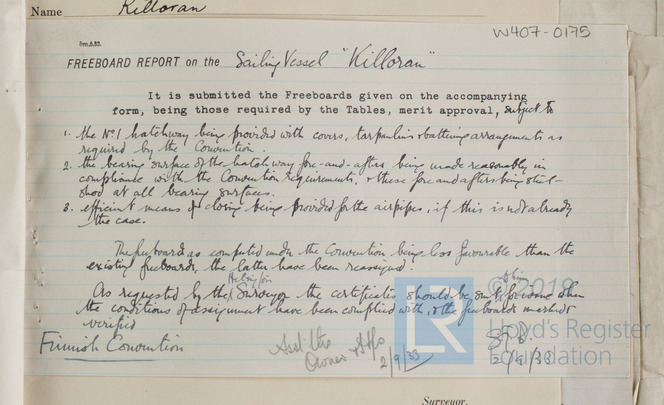 Name Killoran
W407-0175
FREEBOARD REPORT on the Sailing Vessel "Killoran"
It is submitted the Freeboards given on the accompanying
form, being those required by the Tables, merit approval, subject to
1. the No 1 hatchway being provided with covers, tarpaulins & battening arrangements as
required by the Convention.
2. the bearing surface of the hatchway fore-and-afters being made reasonably in
compliance with the Convention requirements, & these fore and afters being steel-
shod at all bearing surfaces.
3. efficient means of closing being provided for the airpipes, if this is not already
the case.
The freeboard as computed under the Convention being less favourable than the
existing freeboards, the latter have been reassigned.
Helsingfors
As requested by the Surveyor the certificate should be sent to him when
the conditions of assignment have been complied with, & the freeboards marked &
verified
Finnish Convention
Owner
2/9/33
2/9/33
© 2018
LR
Lloyd's Register
Foundation
Surveyor.